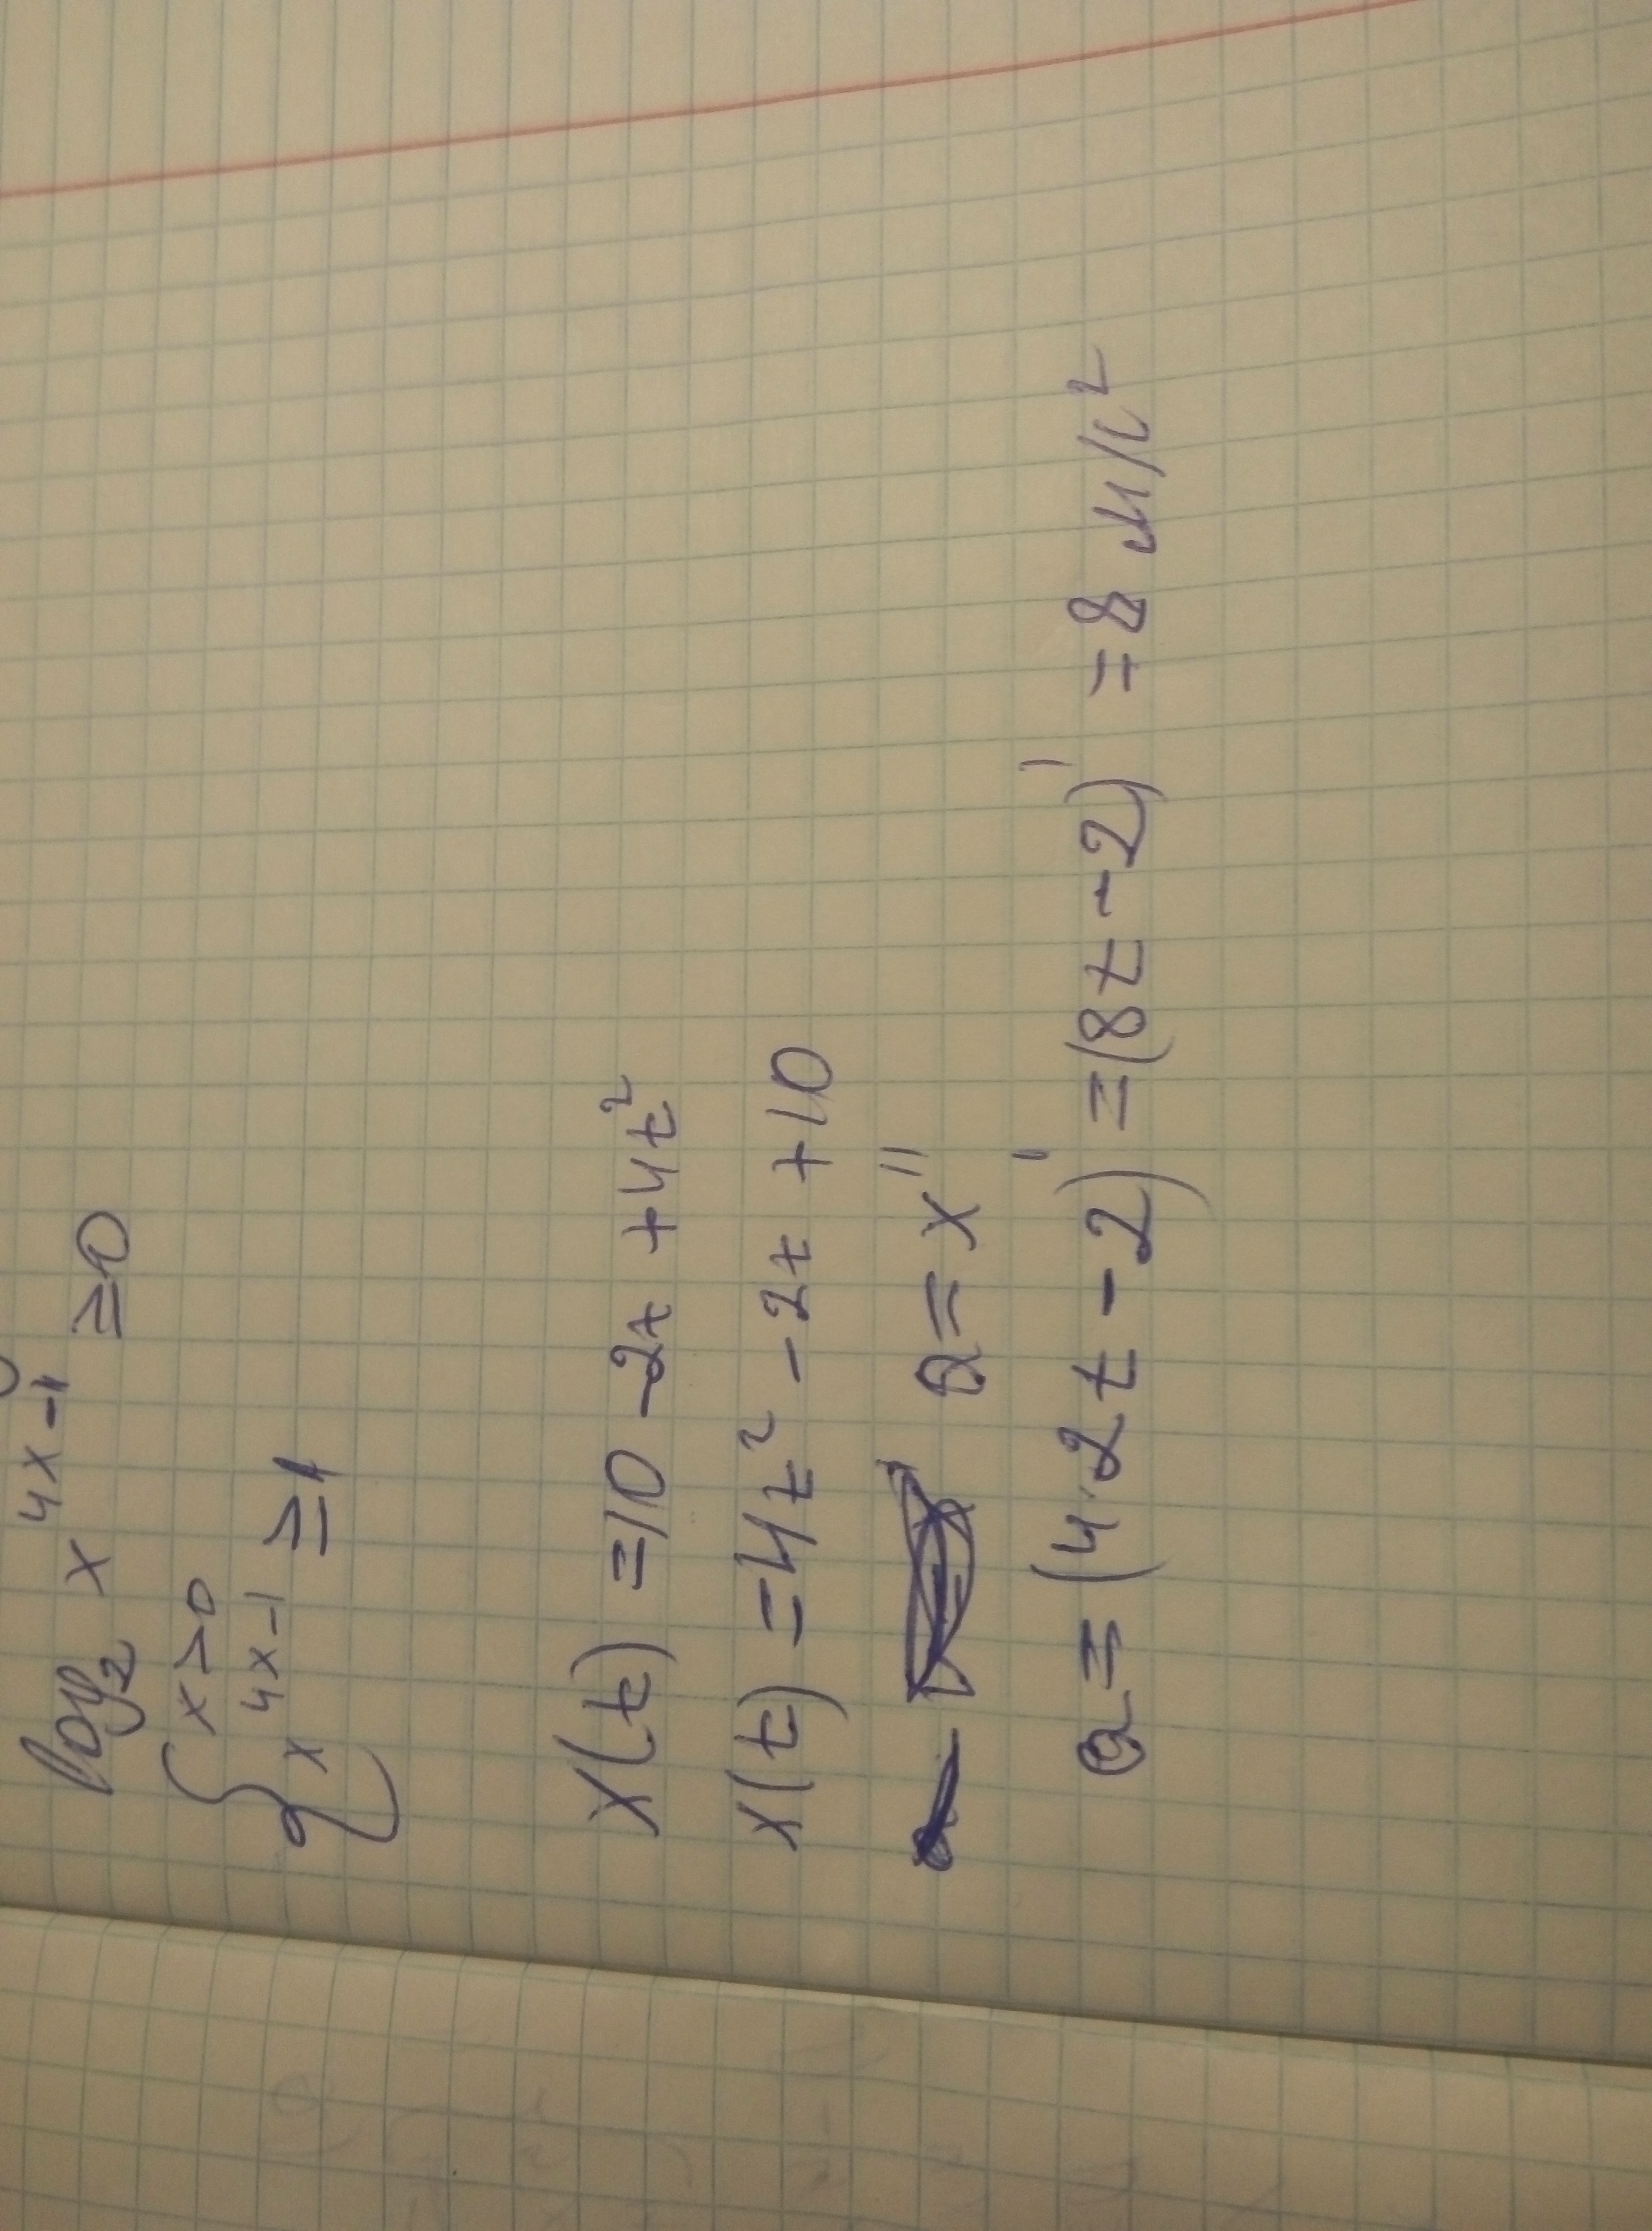 log₂ x^(4x-1) ≥ 0
{ x > 0
x^(4x-1) ≥ 1
x(t) = 10 - 2t + 4t²
x(t) = 4t² - 2t + 10
a = x''
a = (4·2t - 2)' = (8t - 2)' = 8 м/с²